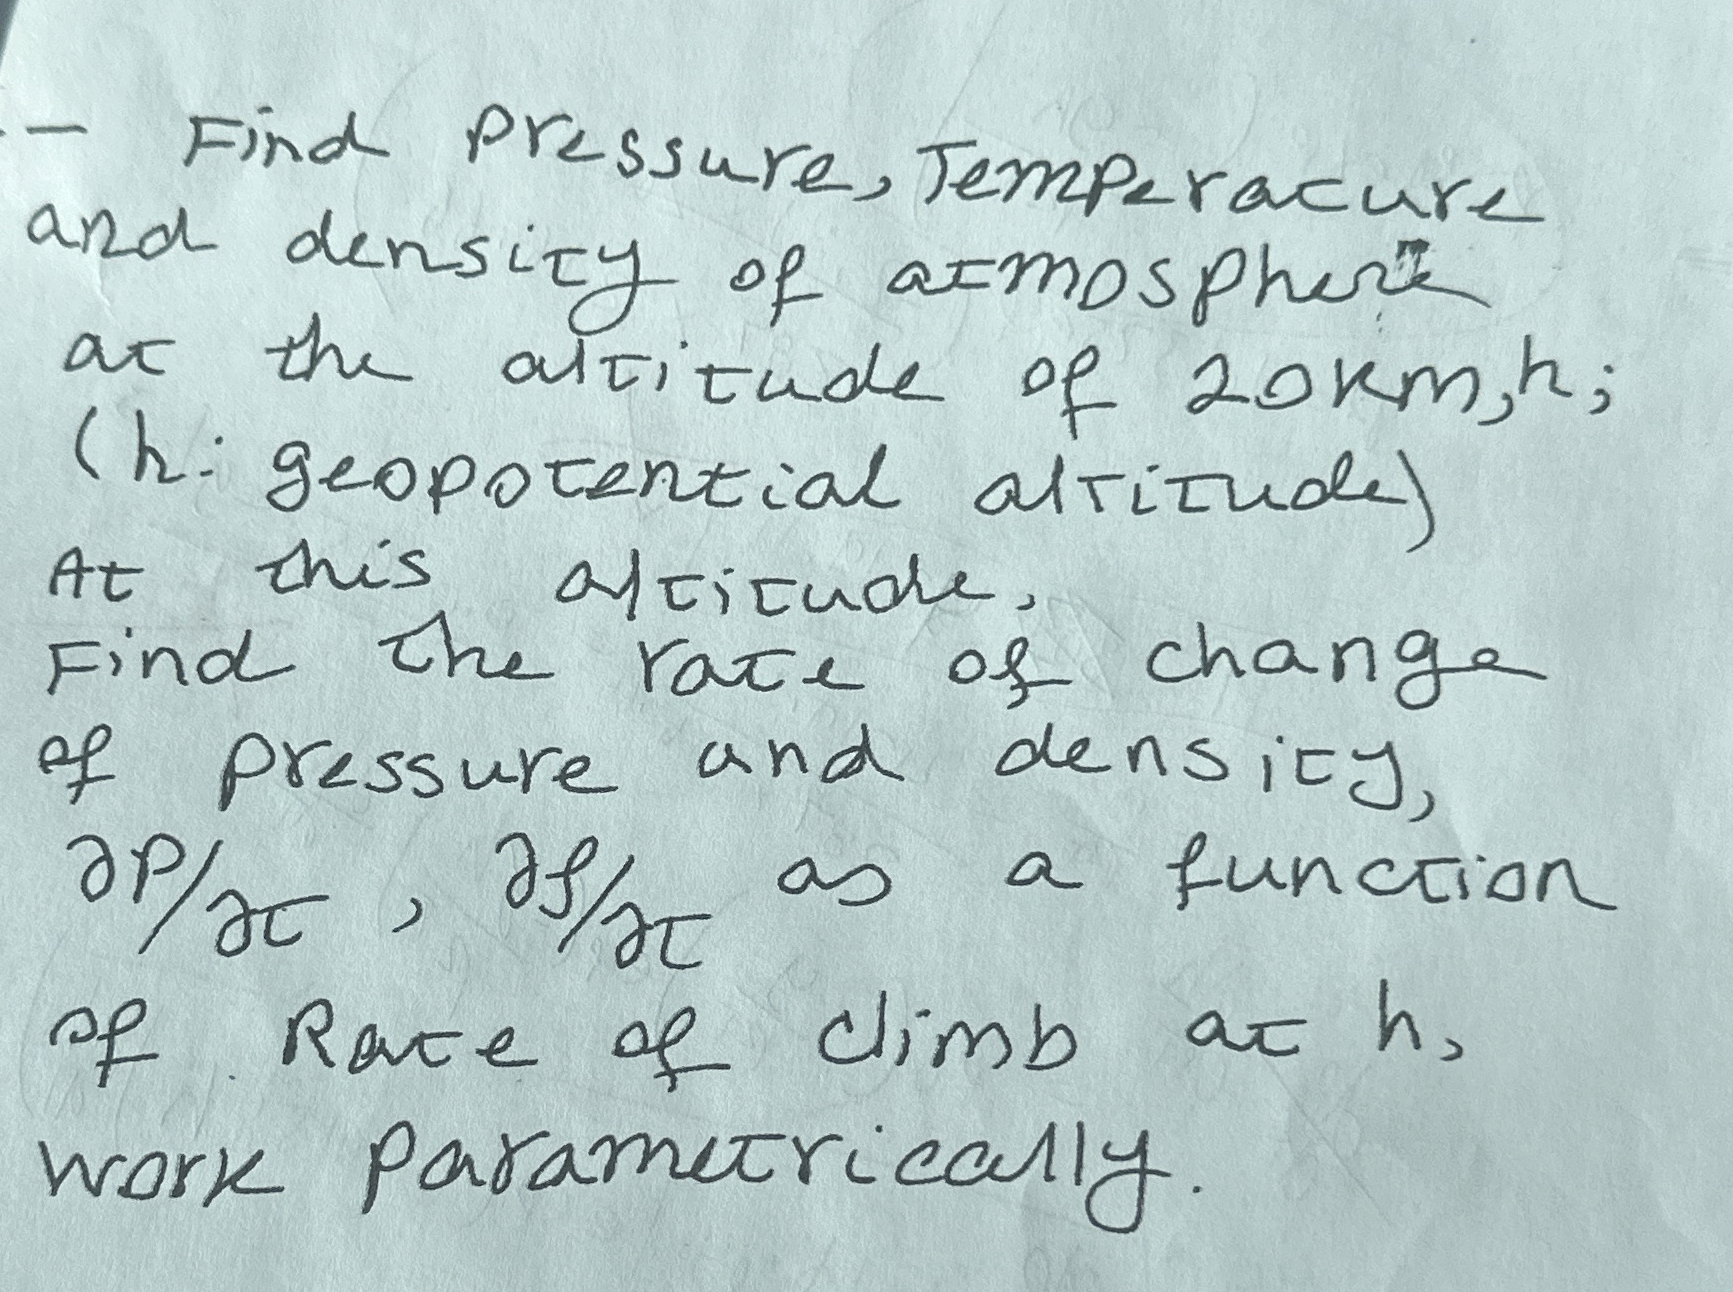 - Find pressure, Temperature
and density of atmosphere
at the altitude of 20km, h;
(h: geopotential altitude)
At this altitude,
Find the rate of change
of pressure and density,
∂P/∂t, ∂ρ/∂t as a function
of Rate of climb at h,
work parametrically.